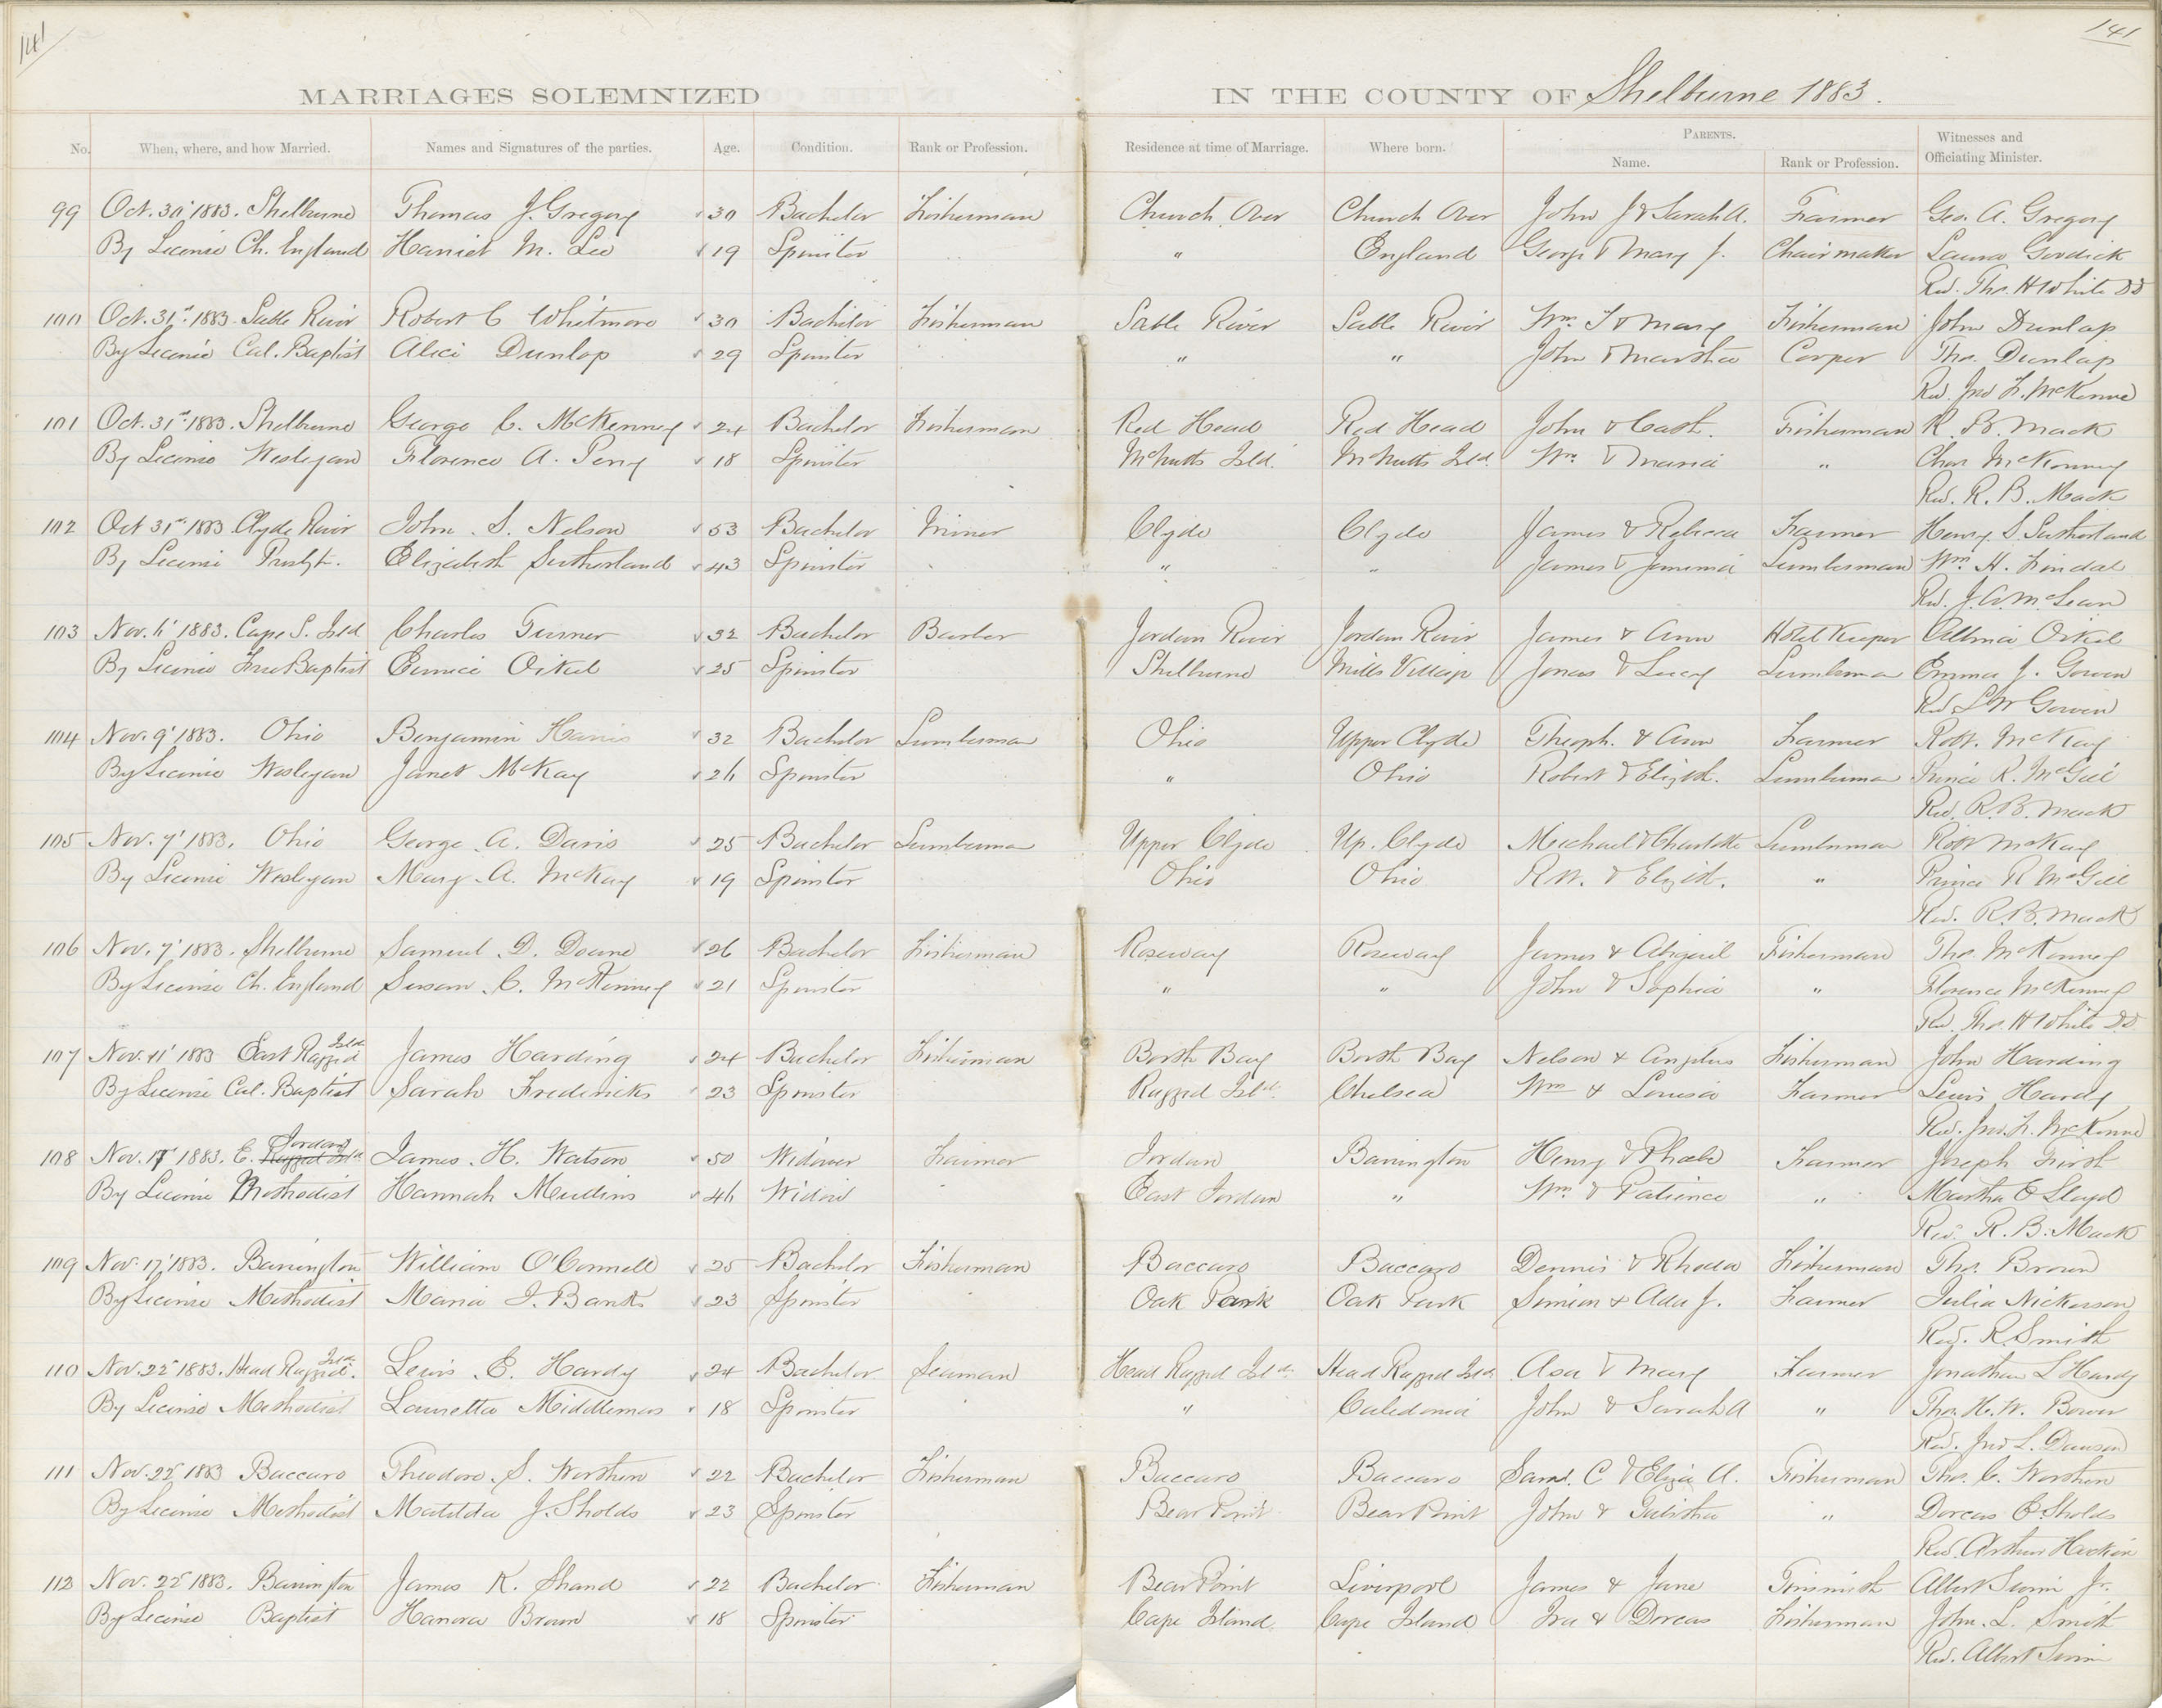 141
141
MARRIAGES SOLEMNIZED IN THE COUNTY OF Shelburne 1883.
No. When, where, and how Married. Names and Signatures of the parties. Age. Condition. Rank or Profession. Residence at time of Marriage. Where born. PARENTS. Name. Rank or Profession. Witnesses and Officiating Minister.
99 Oct. 30' 1883. Shelburne Thomas J. Gregory 30 Bachelor Fisherman Church Over Church Over John J & Sarah A. Farmer Geo. A. Gregory
By License Ch. England Harriet M. Lee 19 Spinster " England George & Mary J. Chairmaker Laura
Rev. Thos. H White DD
100 Oct. 31st 1883. Sable River Robert C Whitmore 30 Bachelor Fisherman Sable River Sable River Wm. T & Mary Fisherman John Dunlap
By License Cal. Baptist Alice Dunlop 29 Spinster " " John & Martha Cooper Thos. Dunlap
Rev. Jno F. McKenna
101 Oct. 31st 1883. Shelburne George C. McKenney 24 Bachelor Fisherman Red Head Red Head John & Cath. Fisherman R. B. Mack
By License Wesleyan Florence A. Perry 18 Spinster McNutts Isld. McNutts Isld. Wm. & Maria " Chas McKenney
Rev. R. B. Mack
102 Oct 31st 1883 Clyde River John S. Nelson 53 Bachelor Miner Clyde Clyde James & Rebecca Farmer Henry S. Sutherland
By License Presbyt. Elizabeth Sutherland 43 Spinster " " James & Jemima Lumberman Wm. H.
Rev. J. A. McLean
103 Nov. 6' 1883. Cape S. Isld Charles Turner 32 Bachelor Barber Jordan River Jordan River James & Ann Hotel Keeper Oikel
By License Free Baptist Eunice Oikel 25 Spinster Shelburne Mills Village Jonas & Lucy Lumberman Emma J. Gowen
Rev. Gowen
104 Nov. 9' 1883. Ohio Benjamin Harris 32 Bachelor Lumberman Ohio Upper Clyde Theoph. & Ann Farmer Robt. McKay
By License Wesleyan Janet McKay 26 Spinster " Ohio Robert & Elizth. Lumberman Prince R. McGill
Rev. R. B. Mack
105 Nov. 7' 1883. Ohio George A. Davis 25 Bachelor Lumberman Upper Clyde Up. Clyde Michael & Charlotte Lumberman Robt McKay
By License Wesleyan Mary A. McKay 19 Spinster Ohio Ohio Rob. & Elizth. " Prince R McGill
Rev. R. B. Mack
106 Nov. 7' 1883. Shelburne Samuel D. Doane 26 Bachelor Fisherman Roseway Roseway James & Abigail Fisherman Thos. McKenney
By License Ch. England Susan C. McKenney 21 Spinster " " John & Sophia " Florence McKenney
Rev. Thos. H White DD
107 Nov. 11' 1883 East Ragged Isld. James Harding 24 Bachelor Fisherman Booth Bay Booth Bay Nelson & Fisherman John Harding
By License Cal. Baptist Sarah Fredericks 23 Spinster Ragged Isld. Chelsea Wm & Louisa Farmer Lewis Hardy
Rev. Jno. F. McKenna
108 Nov. 17 1883. E. Jordan James H. Watson 50 Widower Farmer Jordan Barrington Henry & Phoebe Farmer Joseph
By License Methodist Hannah Mullins 46 Widow East Jordan " Wm. & Patience " Martha E Lloyd
Rev. R. B. Mack
109 Nov. 17, 1883. Barrington William O'Connell 25 Bachelor Fisherman Baccaro Baccaro Dennis & Rhoda Fisherman Thos. Brown
By License Methodist Maria I. Banks 23 Spinster Oak Park Oak Park Simeon & Ada J. Farmer Julia Nickerson
Rev. R Smith
110 Nov. 22' 1883. Head Ragged Isld. Lewis E. Hardy 24 Bachelor Seaman Head Ragged Isld. Head Ragged Isld. Asa & Mary Farmer Jonathan L Hardy
By License Methodist Lauretta Middlemas 18 Spinster " Caledonia John & Sarah A " Thos. H. W. Bower
Rev. Jno L. Dawson
111 Nov. 22' 1883 Baccaro Theodore S. Worthen 22 Bachelor Fisherman Baccaro Baccaro Saml. C & Eliza A. Fisherman Thos. C. Worthen
By License Methodist Matilda J. Sholds 23 Spinster Bear Point Bear Point John & Tabitha " Dorcas E. Sholds
Rev. Arthur Hockin
112 Nov. 22' 1883. Barrington James K. Shand 22 Bachelor Fisherman Bear Point Liverpool James & Jane Tinsmith Albert Swim Jr.
By License Baptist Hanora Brown 18 Spinster Cape Island Cape Island Ira & Dorcas Fisherman John. L. Smith
Rev. Albert Swim